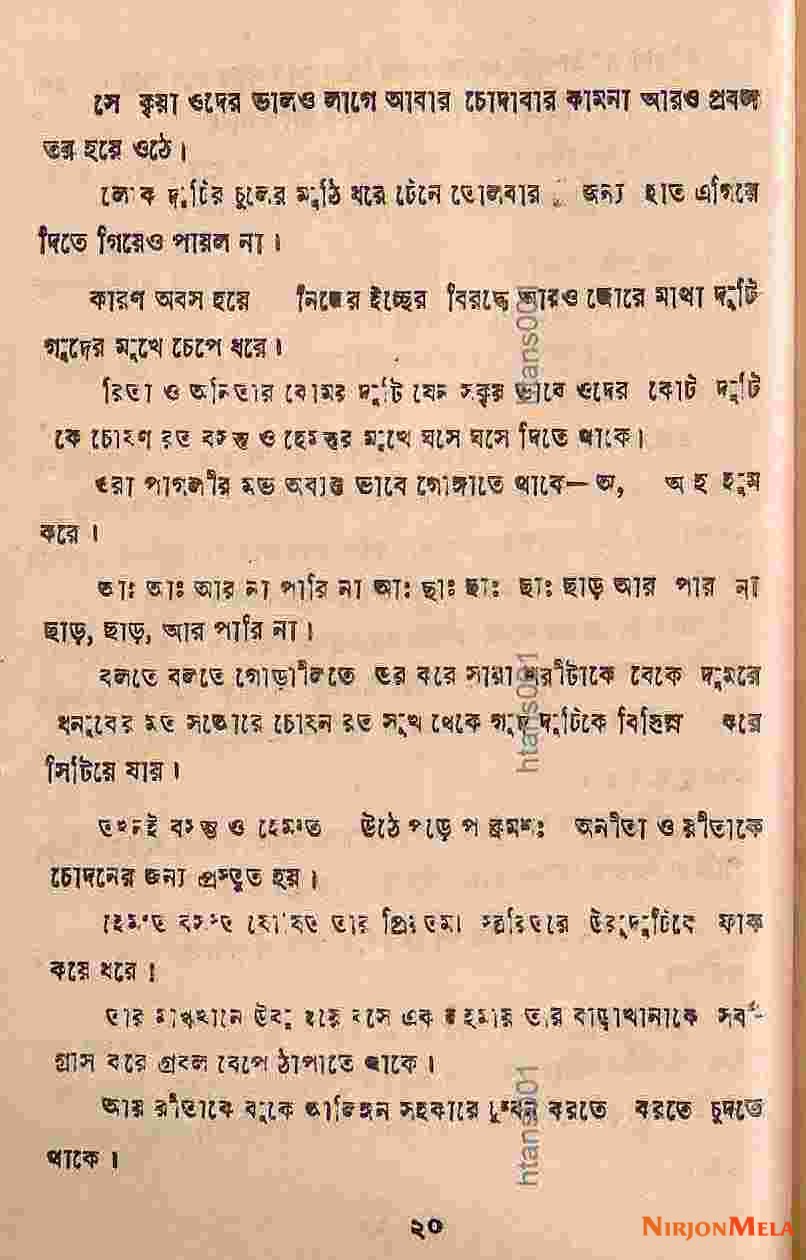 সে কৃয়া ওদের ভালও লাগে আবার চোদাবার কামনা আরও প্রবল
তর হয়ে ওঠে।
লোক দুটির চুলের মুঠি ধরে টেনে তোলবার জন্য হাত এগিয়ে
দিতে গিয়েও পায়ল না।
কারণ অবস হয়ে নিজের ইচ্ছের বিরদ্ধে আরও জোরে মাথা দুটি
গুদের মুখে চেপে ধরে।
রিতা ও অনিতার কোমর দুটি যেন সক্রয় ভাবে ওদের কোট দুটি
কে চোষণ রত বসন্ত ও হেমন্তর মুখে ঘসে ঘসে দিতে থাকে।
ওরা পাগলীর মত অব্যক্ত ভাবে গোঙ্গাতে থাকে—অ, অ হ হুম
করে।
আঃ আঃ আর না পারি না আঃ ছাঃ ছাঃ ছাঃ ছাড় আর পার না
ছাড়, ছাড়, আর পারি না।
বলতে বলতে গোড়ালিতে ভর করে সারা শরীটাকে বেকে দুমরে
ধনুকের মত সজোরে চোষন রত মুখ থেকে গুদ দুটিকে বিছিন্ন করে
সিটিয়ে যায়।
তখনই বসন্ত ও হেমন্ত উঠে পড়ে প ক্রমশঃ অনীতা ও রীতাকে
চোদনের জন্য প্রস্তুত হয়।
হেমন্ত বসন্ত তার প্রিয়তমা উরুদুটিকে ফাক
করে ধরে।
তার মাঝখানে উবু হয়ে বসে এক তার বাড়াখানাকে সর্ব-
গ্রাস করে প্রবল বেগে ঠাপাতে থাকে।
আর রীতাকে বুকে আলিঙ্গন সহকারে চুম্বন করতে করতে চুদতে
থাকে।
২০
htans001
htans001
htans001
NIRJONMELA